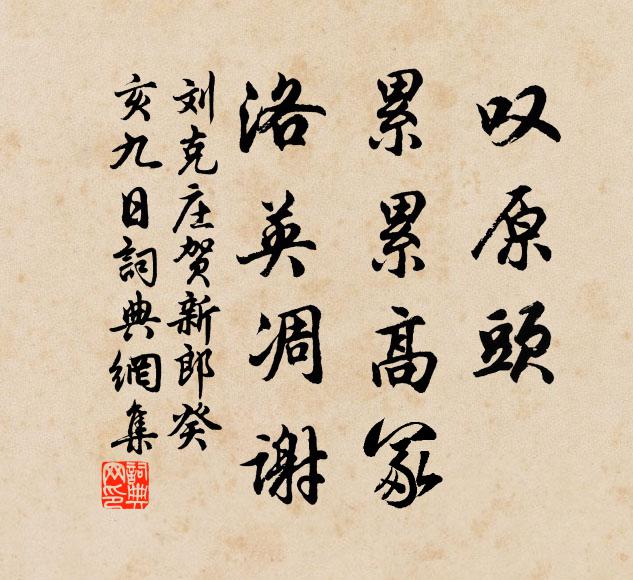 叹原頭
累累高冢
洛英凋谢
刘克庄贺新郎癸
亥九日詞典網集
詞典网印